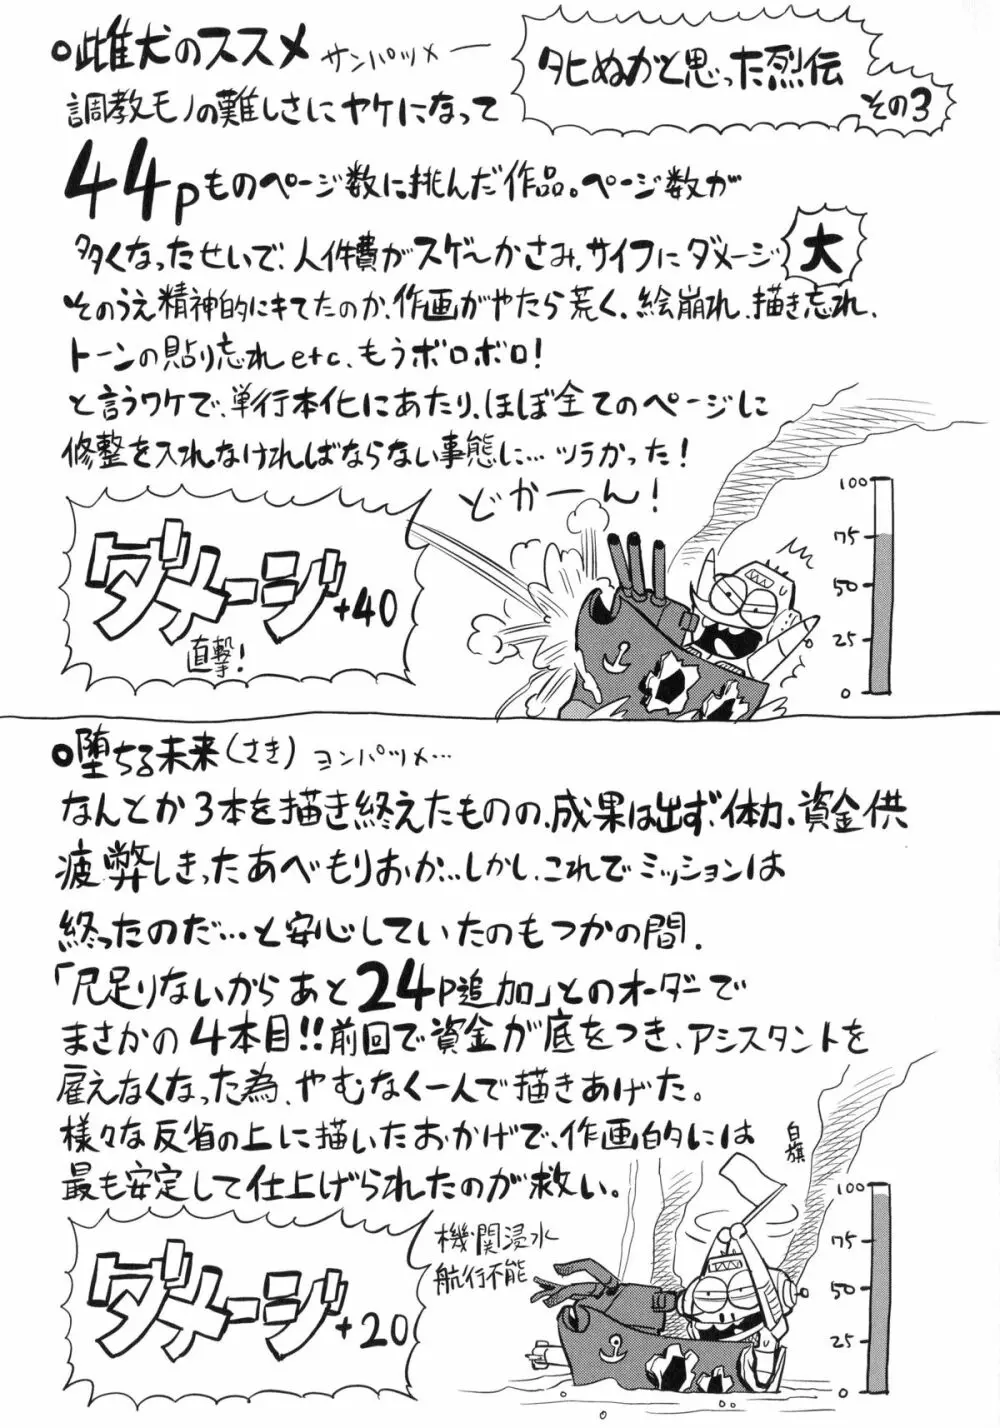 タヒぬかと思った烈伝
その3
○雌犬のススメ サンパツメー
調教モノの難しさにヤケになって
44pものページ数に挑んだ作品。ページ数が
多くなったせいで、人件費がスゲ〜かさみ、サイフにダメージ大
そのうえ精神的にキてたのか、作画がやたら荒く、絵崩れ、描き忘れ、
トーンの貼り忘れetc、もうボロボロ!
と言うワケで、単行本化にあたり、ほぼ全てのページに
修整を入れなければならない事態に…ツラかった!
どかーん!
ダメージ+40
直撃!
100
75
50
25
0
○堕ちる未来(さき) ヨンパツメ…
なんとか3本を描き終えたものの、成果は出ず、体力、資金供
疲弊しきったあべもりおか…しかし、これでミッションは
終ったのだ…と安心していたのもつかの間、
「尺足りないからあと24P追加」とのオーダーで
まさかの4本目!!前回で資金が底をつき、アシスタントを
雇えなくなった為、やむなく一人で描きあげた。
様々な反省の上に描いたおかげで、作画的には
最も安定して仕上げられたのが救い。
白旗
機関浸水
航行不能
ダメージ+20
100
75
50
25
0